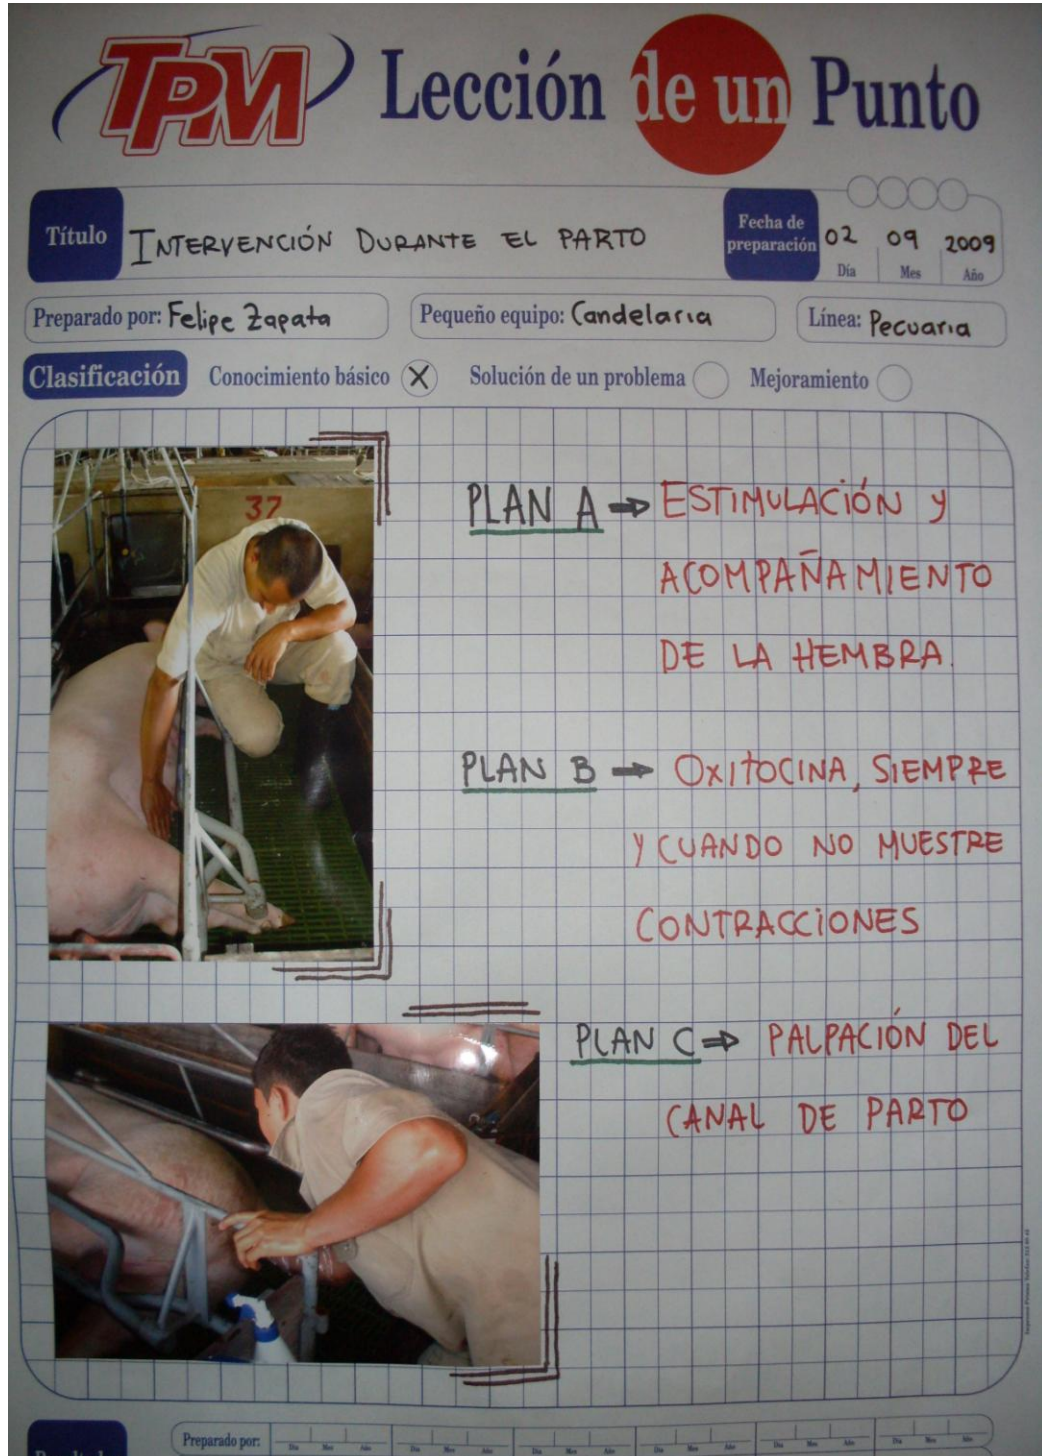 TPM Lección de un Punto
Título INTERVENCIÓN DURANTE EL PARTO
Fecha de preparación 02 09 2009
Día Mes Año
Preparado por: Felipe Zapata Pequeño equipo: Candelaria Línea: Pecuaria
Clasificación Conocimiento básico X Solución de un problema Mejoramiento
37
PLAN A → ESTIMULACIÓN Y
ACOMPAÑAMIENTO
DE LA HEMBRA.
PLAN B → OXITOCINA, SIEMPRE
Y CUANDO NO MUESTRE
CONTRACCIONES
PLAN C → PALPACIÓN DEL
CANAL DE PARTO
Preparado por:
Día Mes Año Día Mes Año Día Mes Año Día Mes Año Día Mes Año Día Mes Año